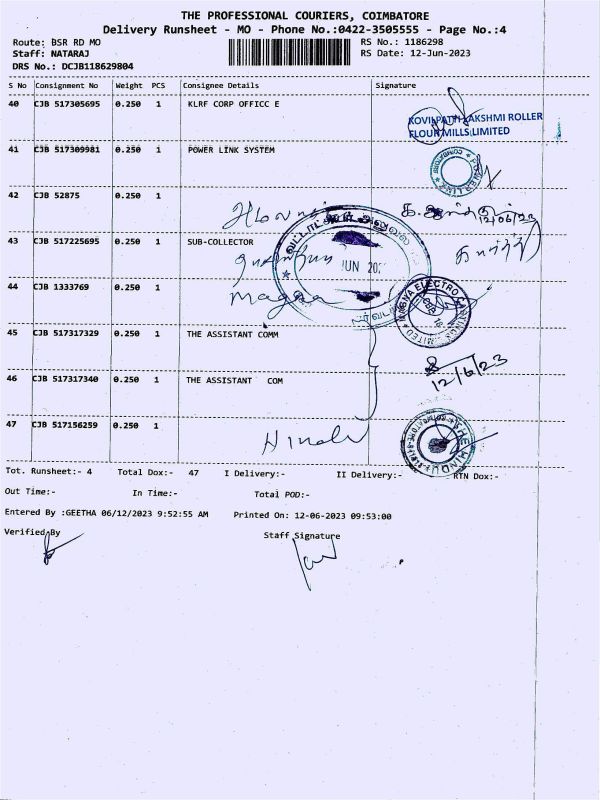 THE PROFESSIONAL COURIERS, COIMBATORE
Delivery Runsheet - MO - Phone No.:0422-3505555 - Page No.:4
Route: BSR RD MO RS No.: 1186298
Staff: NATARAJ RS Date: 12-Jun-2023
DRS No.: DCJB118629804
S No Consignment No Weight PCS Consignee Details Signature
40 CJB 517305695 0.250 1 KLRF CORP OFFICC E
KOVILPATTI LAKSHMI ROLLER
FLOUR MILLS LIMITED
41 CJB 517309981 0.250 1 POWER LINK SYSTEM
POWER LINK
42 CJB 52875 0.250 1
12/06/23
43 CJB 517225695 0.250 1 SUB-COLLECTOR
JUN 202
44 CJB 1333769 0.250 1 Magna
MAGNA ELECTRO CASTINGS LIMITED
45 CJB 517317329 0.250 1 THE ASSISTANT COMM
12/6/23
46 CJB 517317340 0.250 1 THE ASSISTANT COM
47 CJB 517156259 0.250 1 Hindu
THE HINDU
Tot. Runsheet:- 4 Total Dox:- 47 I Delivery:- II Delivery:- RTN Dox:-
Out Time:- In Time:- Total POD:-
Entered By :GEETHA 06/12/2023 9:52:55 AM Printed On: 12-06-2023 09:53:00
Verified By Staff Signature